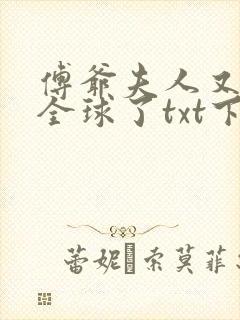 傅爷夫人又
全球了txt下
蕾妮·索莫菲